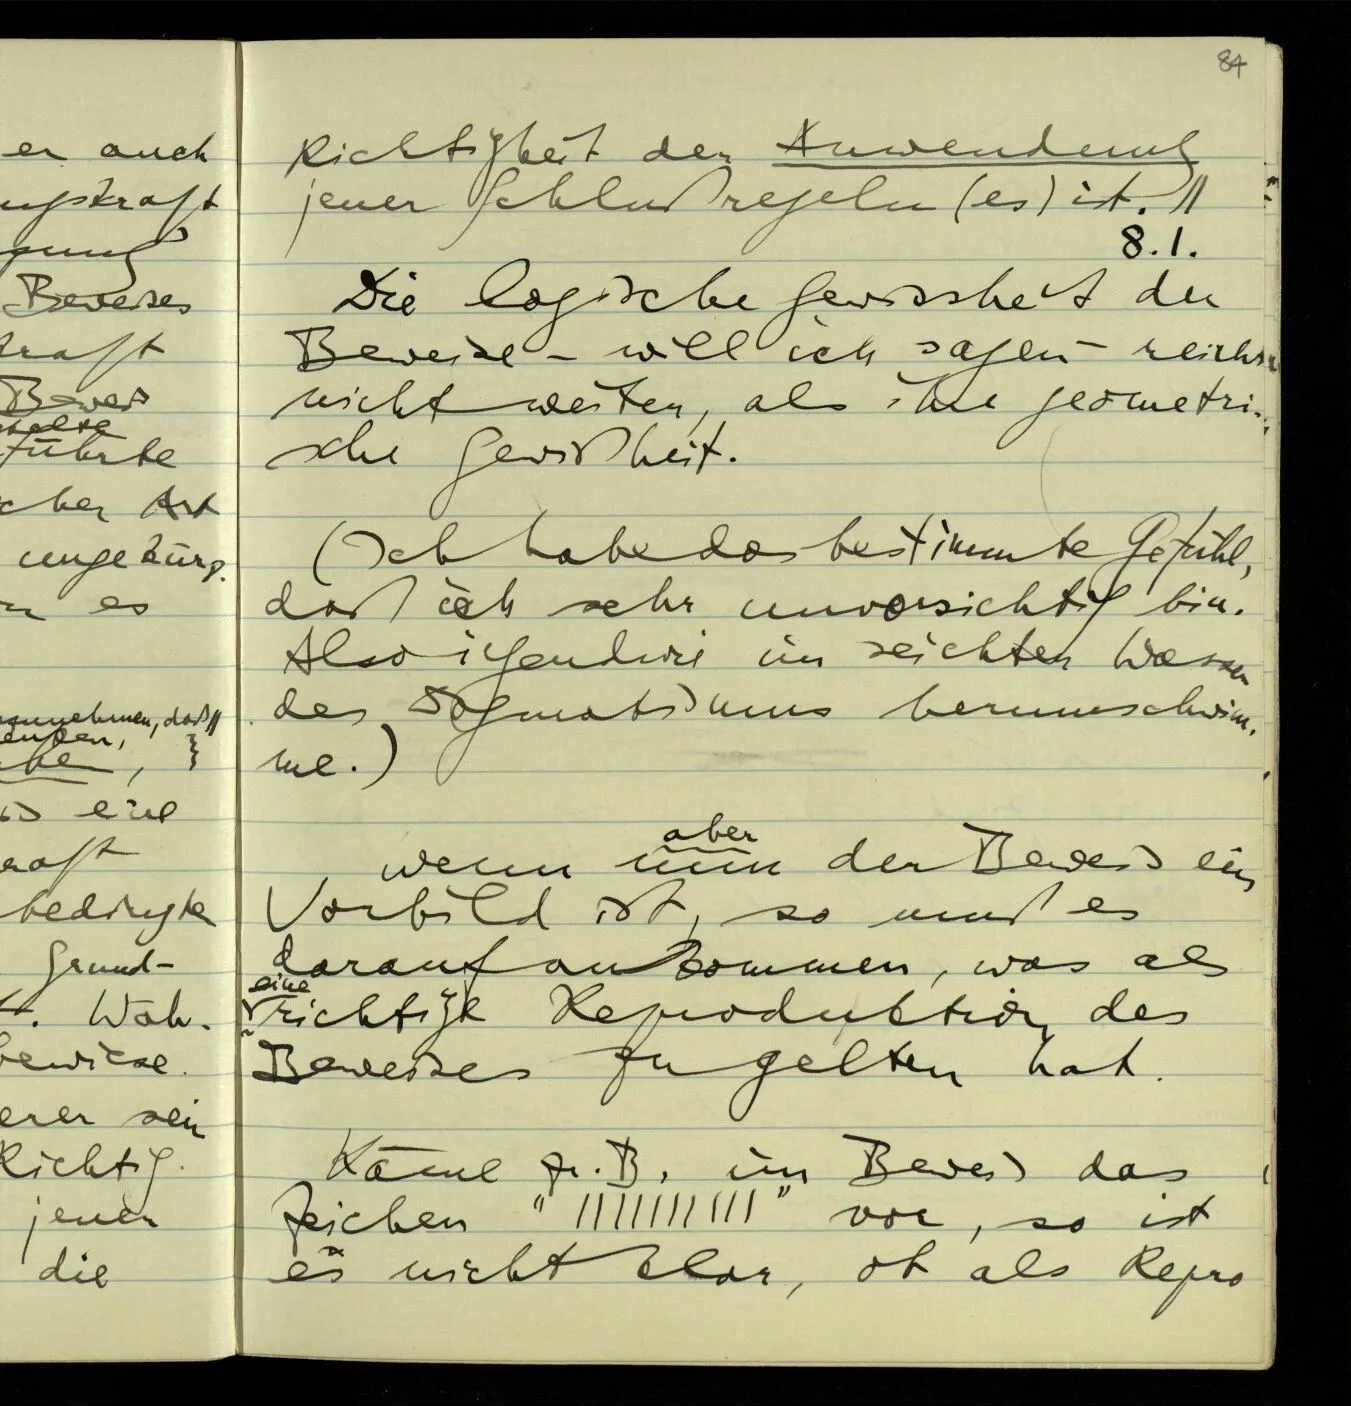 er auch
ngskraft
gung
Beweises
kraft
Beweis
selbe
führte
cher Art
ungekürz.
n es
annehmen, daß //
enden,
be,
is eine
raft
bedingte
Grund-
t. Wäh.
bewiese.
erer sein
Richtig.
jener
die
84
Richtigkeit der Anwendung
jener Schlußregeln (es) ist. //
8.1.
Die logische Gewissheit der
Beweise – will ich sagen – reicht
nicht weiter, als ihre geometri-
sche Gewißheit.
(Ich habe das bestimmte Gefühl,
daß ich sehr unvorsichtig bin.
Also irgendwie im seichten Wasser
des Dogmatismus herumschwim-
me.)
aber
wenn nun der Beweis ein
Vorbild ist, so muß es
darauf ankommen, was als
eine
richtige Reproduktion des
Beweises zu gelten hat.
Käme z.B. im Beweis das
Zeichen " |||||||||| " vor, so ist
es nicht klar, ob als Repro